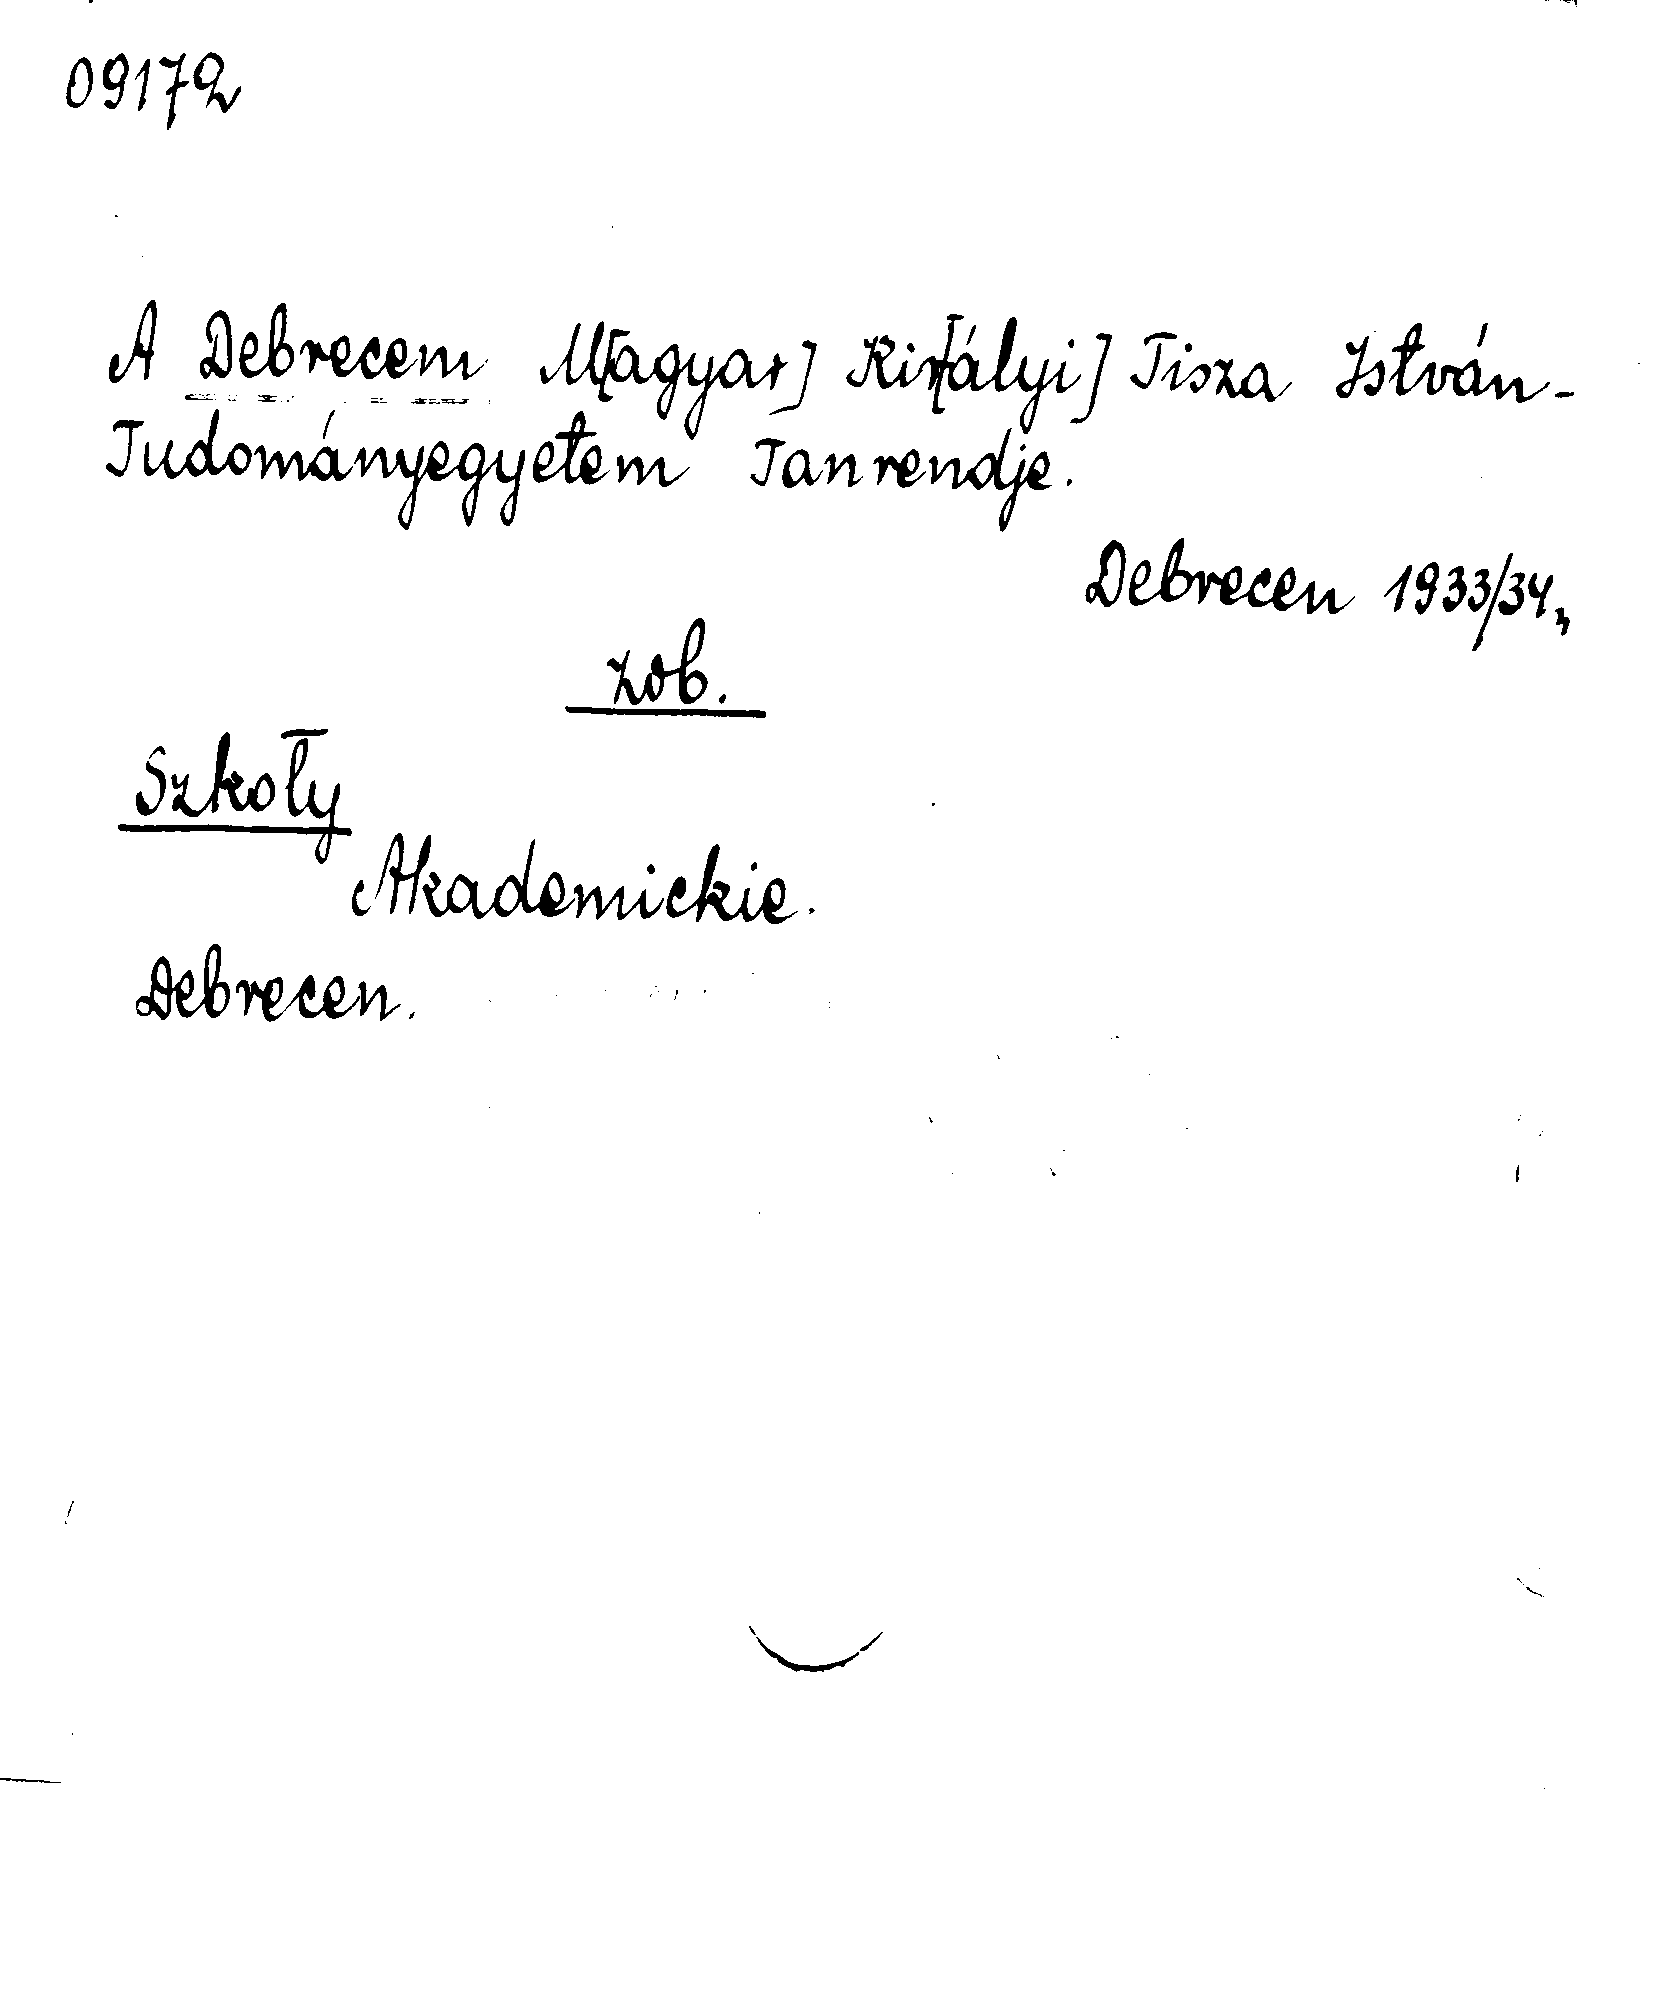 09172
A Debrecem M[agyar] Kir[ályi] Tisza István-
Tudományegyetem Tanrendje.
Debrecen 1933/34,,
zob.
Szkoły
Akademickie.
Debrecen.